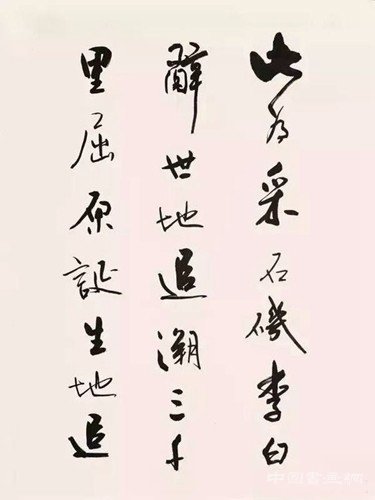 此为采石磯李白
辭世地追溯三千
里屈原誕生地追
中国書画網